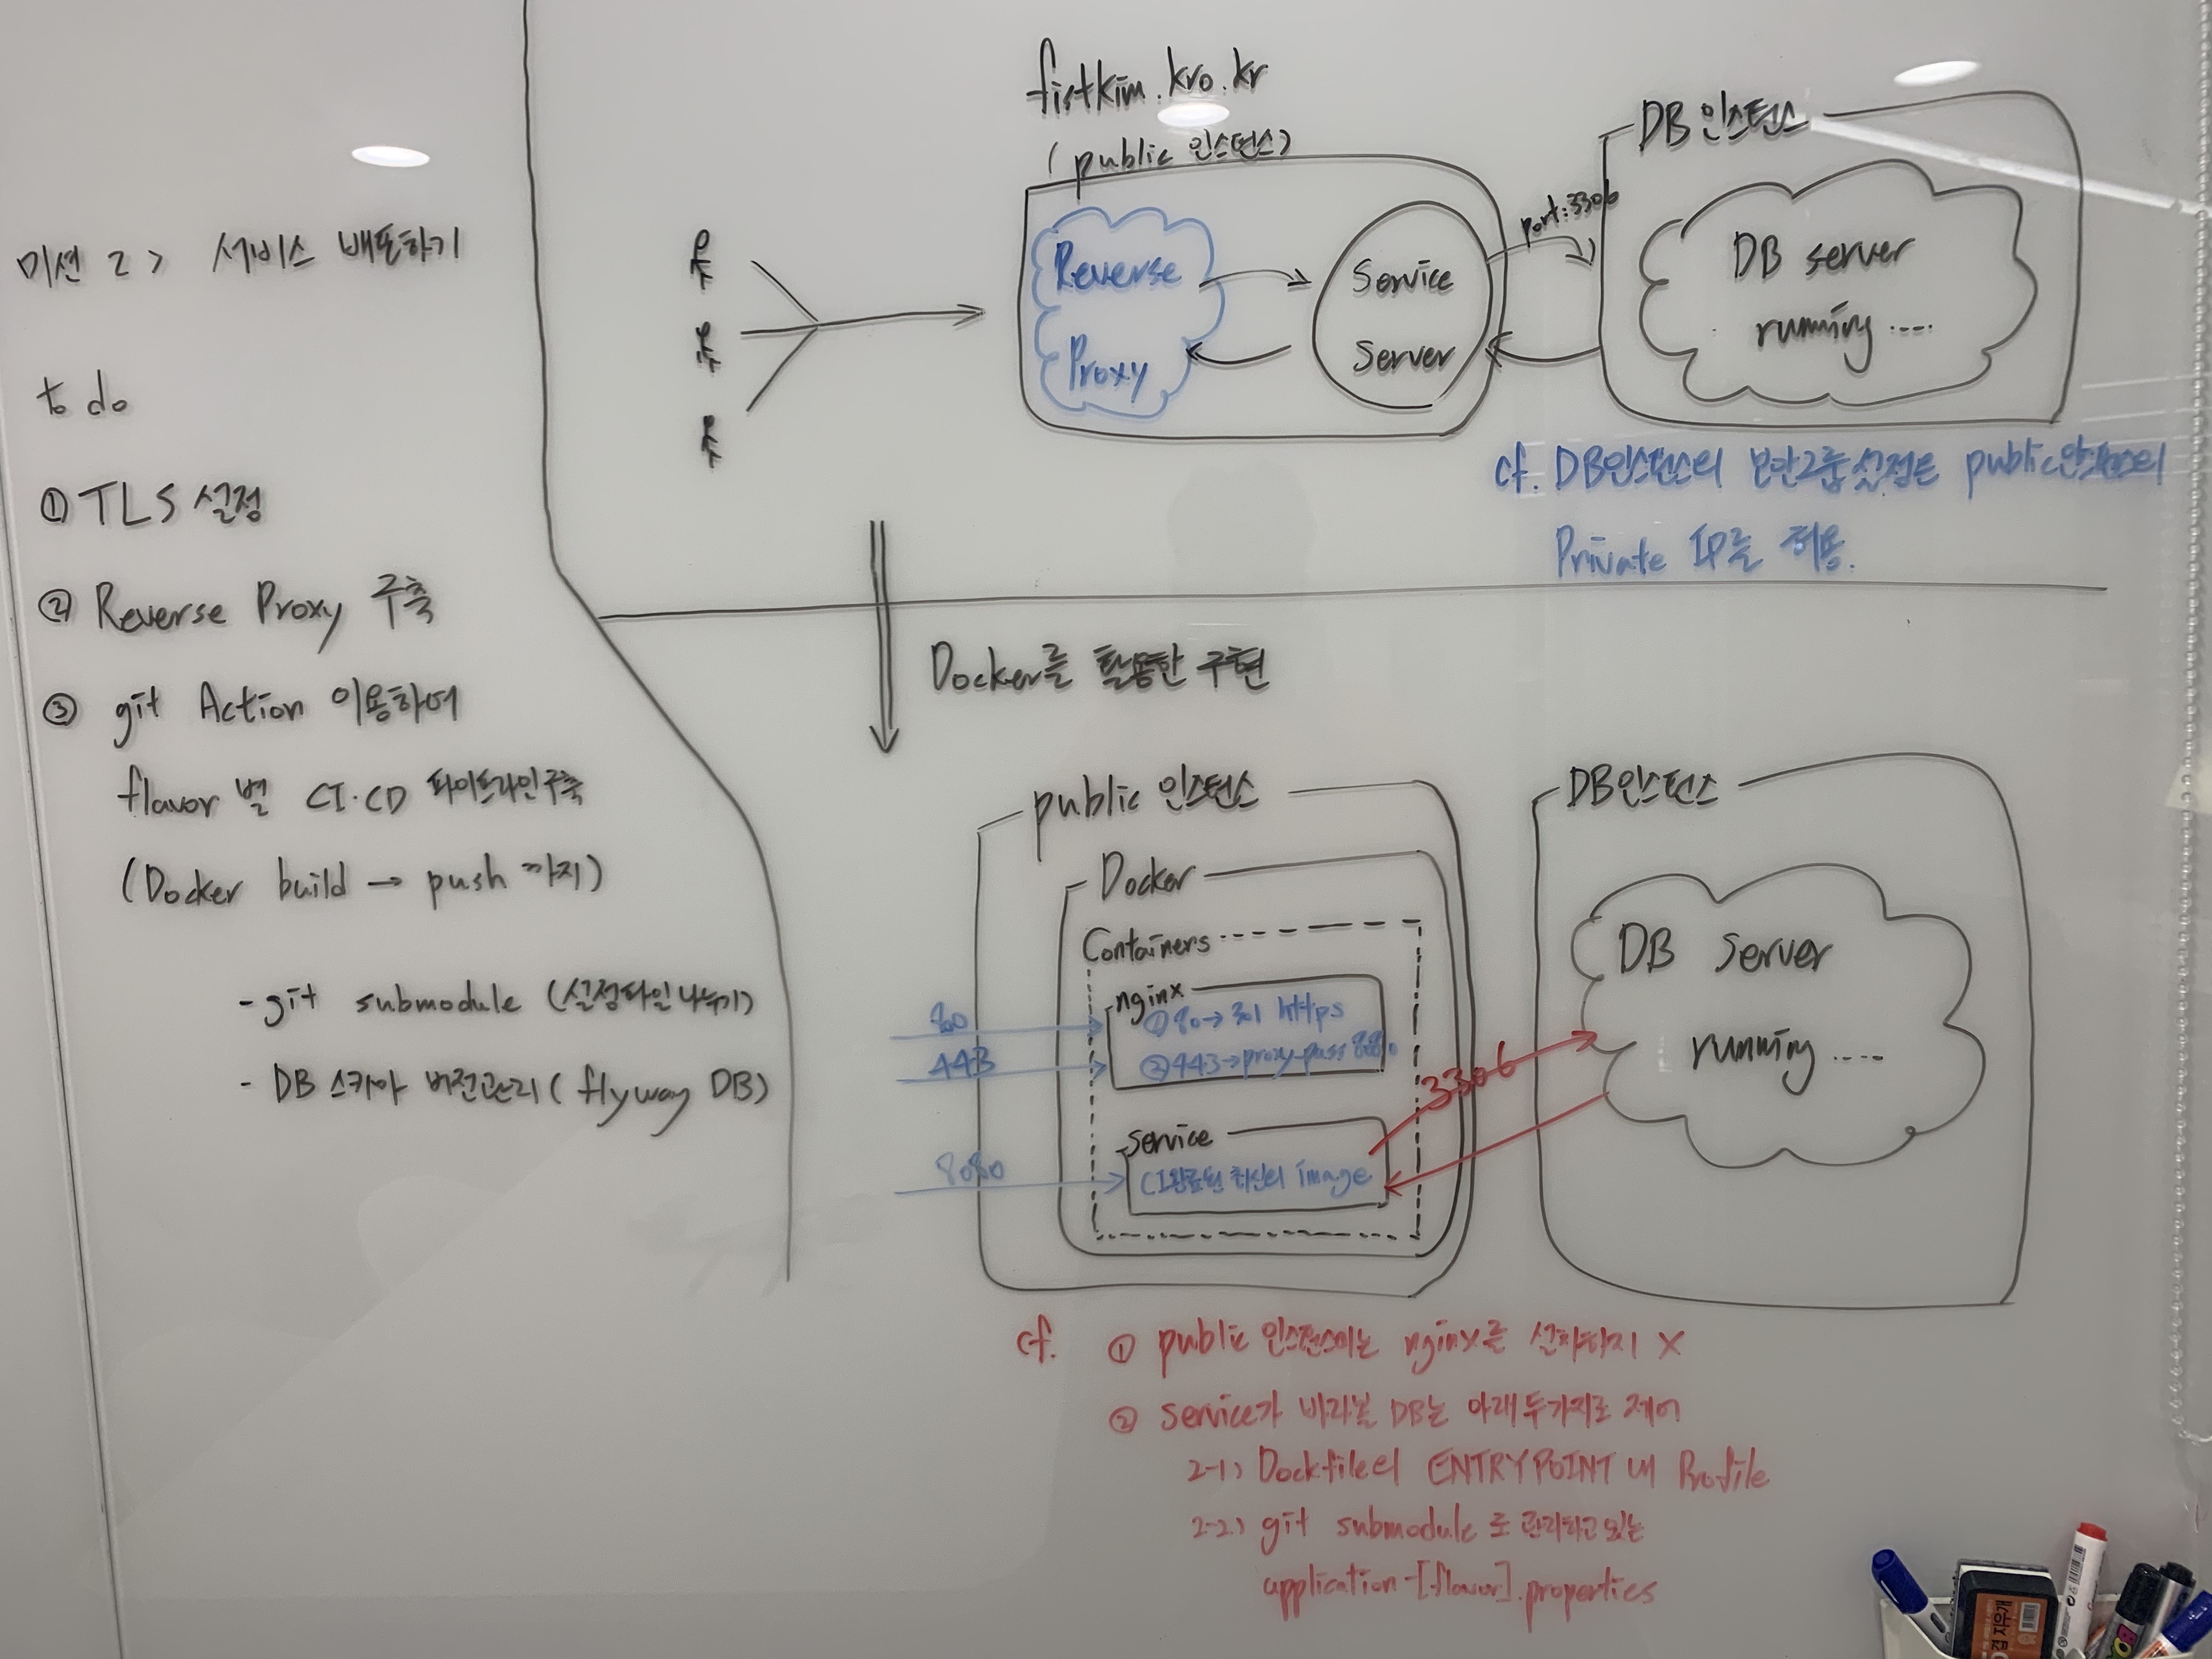 미션 2> 서비스 배포하기
to do
① TLS 설정
② Reverse Proxy 구축
③ git Action 이용하여
flavor 별 CI·CD 파이프라인구축
(Docker build → push 까지)
- git submodule (설정파일 나누기)
- DB 스키마 버전관리 ( flyway DB)
firtkim.kro.kr
( public 인스턴스)
Reverse
Proxy
Service
Server
port:3306
DB 인스턴스
DB server
running ....
cf. DB인스턴스의 보안그룹설정은 public인스턴스의
Private IP를 허용.
Docker를 활용한 구현
public 인스턴스
Docker
Containers
nginx
① 80→ 301 https
② 443→proxy-pass 8080
80
443
service
CI완료된 최신의 image
8080
3306
DB인스턴스
DB Server
running ....
cf. ① public 인스턴스에는 nginx를 설치하지 X
② service가 바라볼 DB는 아래 두가지로 제어
2-1) Dockfile의 ENTRYPOINT 내 Profile
2-2) git submodule 로 관리하고 있는
application-[flavor].properties
지우개